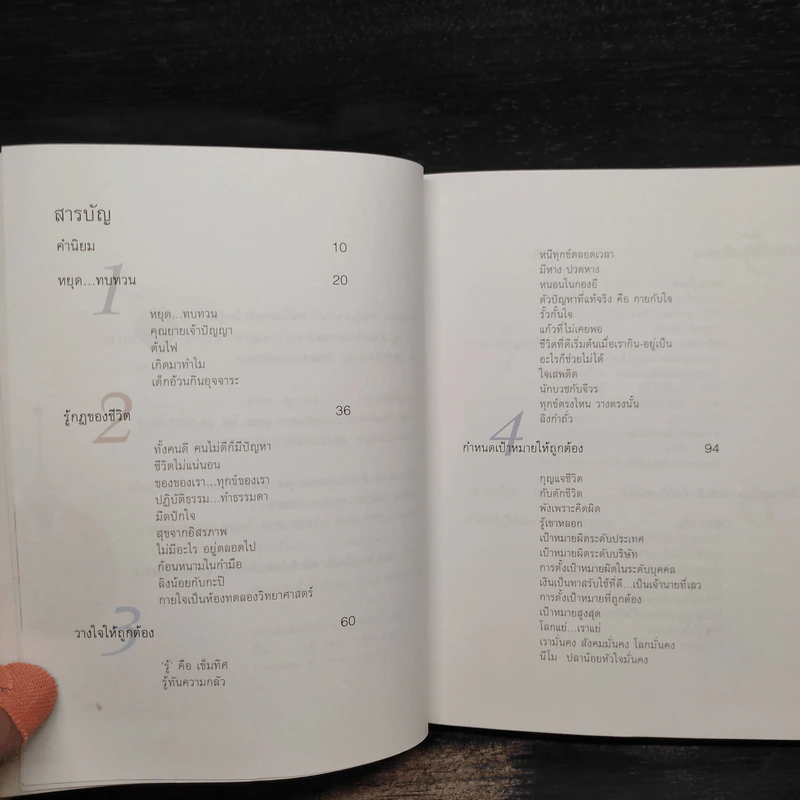 สารบัญ
คำนิยม 10
1
หยุด...ทบทวน 20
หยุด...ทบทวน
คุณยายเจ้าปัญญา
ต้นไฟ
เกิดมาทำไม
เด็กอ้วนกินอุจจาระ
2
รู้กฎของชีวิต 36
ทั้งคนดี คนไม่ดีก็มีปัญหา
ชีวิตไม่แน่นอน
ของของเรา...ทุกข์ของเรา
ปฏิบัติธรรม...ทำธรรมดา
มีดปักใจ
สุขจากอิสรภาพ
ไม่มีอะไร อยู่ตลอดไป
ก้อนหนามในกำมือ
ลิงน้อยกับกะปิ
กายใจเป็นห้องทดลองวิทยาศาสตร์
3
วางใจให้ถูกต้อง 60
'รู้' คือ เข็มทิศ
รู้ทันความกลัว
หนีทุกข์ตลอดเวลา
มีหาง ปวดหาง
หนอนในกองอึ
ตัวปัญหาที่แท้จริง คือ กายกับใจ
รั้วกั้นใจ
แก้วที่ไม่เคยพอ
ชีวิตที่ดีเริ่มต้นเมื่อเรากิน-อยู่เป็น
อะไรก็ช่วยไม่ได้
ใจเสพติด
นักบวชกับจีวร
ทุกข์ตรงไหน วางตรงนั้น
ลิงกำถั่ว
4
กำหนดเป้าหมายให้ถูกต้อง 94
กุญแจชีวิต
กับดักชีวิต
พังเพราะคิดผิด
รู้เขาหลอก
เป้าหมายผิดระดับประเทศ
เป้าหมายผิดระดับบริษัท
การตั้งเป้าหมายผิดในระดับบุคคล
เงินเป็นทาสรับใช้ที่ดี...เป็นเจ้านายที่เลว
การตั้งเป้าหมายที่ถูกต้อง
เป้าหมายสูงสุด
โลกแย่...เราแย่
เรามั่นคง สังคมมั่นคง โลกมั่นคง
นีโม ปลาน้อยหัวใจมั่นคง